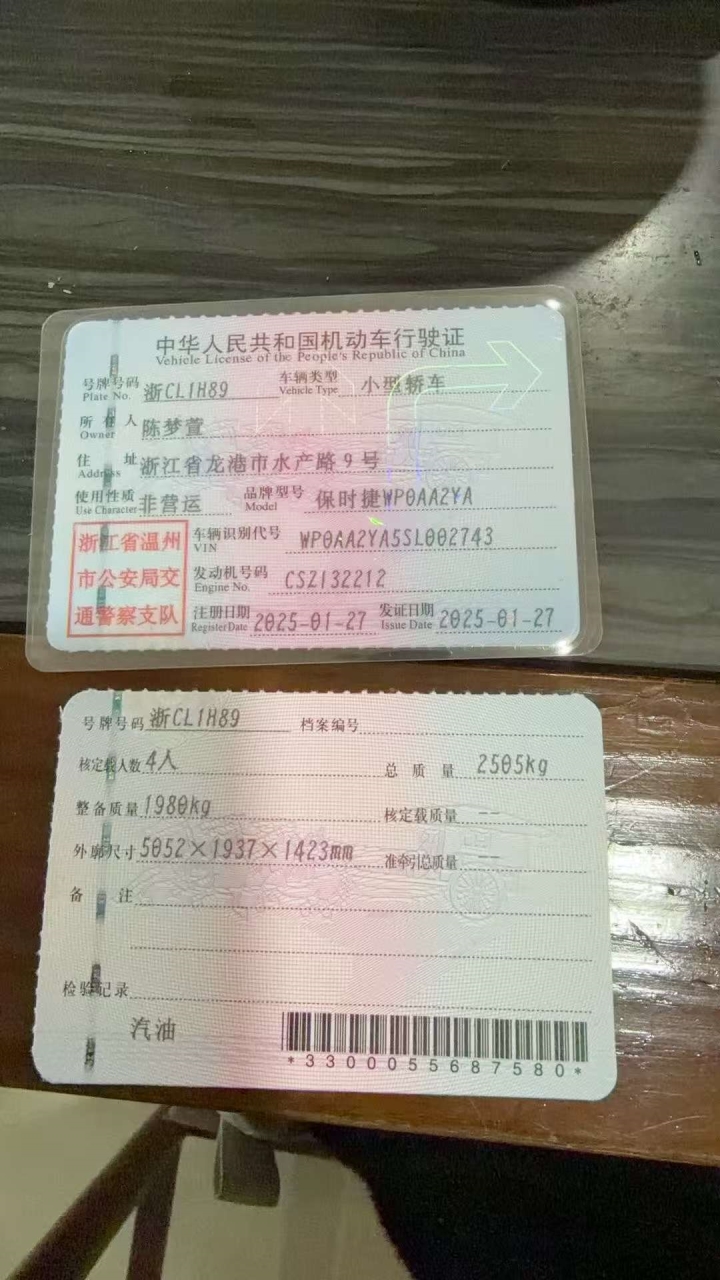 中华人民共和国机动车行驶证
Vehicle License of the People's Republic of China
号牌号码 Plate No. 浙CL1H89 车辆类型 Vehicle Type 小型轿车
所有人 Owner 陈梦萱
住址 Address 浙江省龙港市水产路9号
使用性质 Use Character 非营运 品牌型号 Model 保时捷WP0AA2YA
浙江省温州市公安局交通警察支队
车辆识别代号 VIN WP0AA2YA5SL002743
发动机号码 Engine No. CSZ132212
注册日期 Register Date 2025-01-27 发证日期 Issue Date 2025-01-27
号牌号码 浙CL1H89 档案编号
核定载人数 4人 总质量 2505kg
整备质量 1980kg 核定载质量 --
外廓尺寸 5052×1937×1423mm 准牵引总质量 --
备注
检验记录
汽油
*3300055687580*